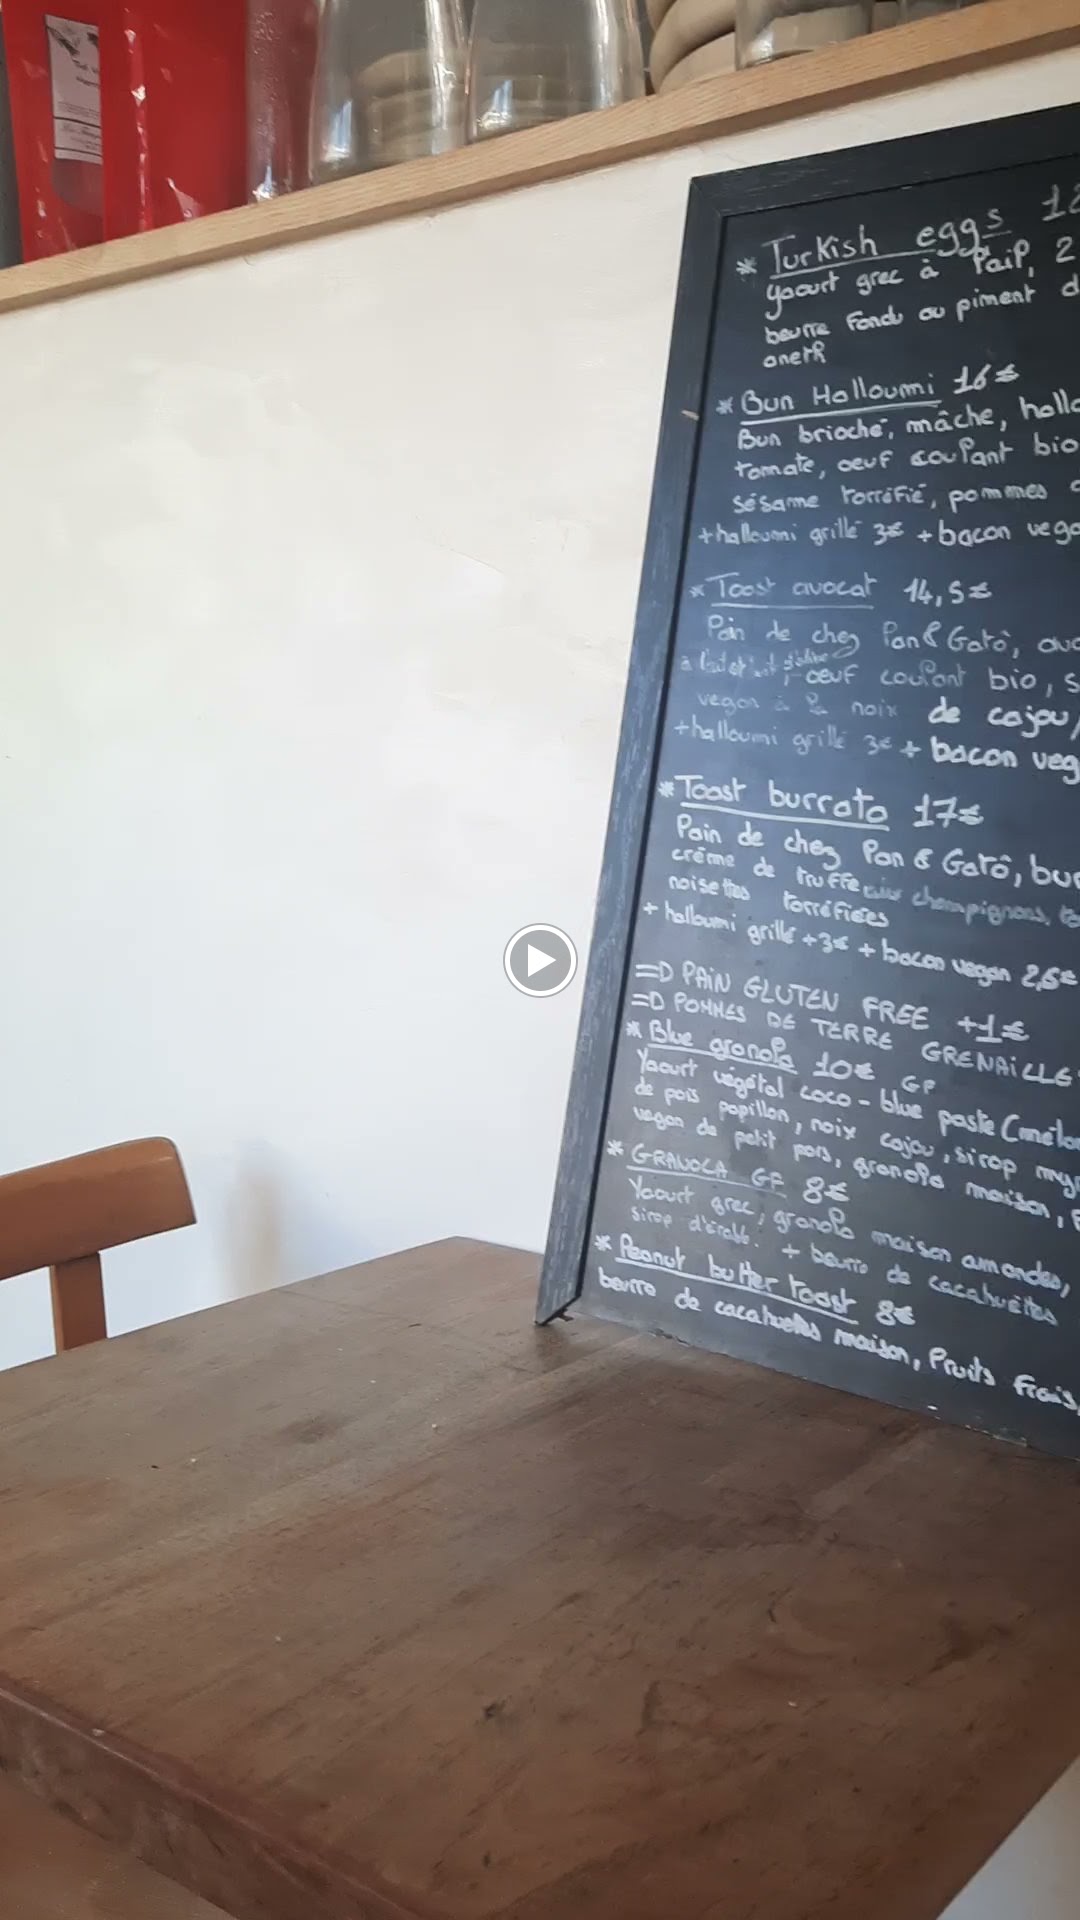 * Turkish eggs 12
Yaourt grec à l'ail, 2
beurre fondu au piment d
aneth
* Bun Halloumi 16€
Bun brioché, mâche, hallo
tomate, oeuf coulant bio
sésame torréfié, pommes
+halloumi grillé 3€ +bacon vega
* Toast avocat 14,5€
Pain de chez Pan & Gatô, avo
oeuf coulant bio, s
vegan à la noix de cajou,
+halloumi grillé 3€ + bacon veg
* Toast burrata 17€
Pain de chez Pan & Gatô, bur
crème de truffe aux champignons, to
noisettes torréfiées
+ halloumi grillé +3€ + bacon vegan 2,5€
=D PAIN GLUTEN FREE +1€
=D POMMES DE TERRE GRENAILLE
* Blue granola 10€ GF
Yaourt végétal coco - blue paste (mélan
de pois papillon, noix cajou, sirop
vegan de petit pois, granola maison,
* GRANOLA GF 8€
Yaourt grec, granola maison amandes,
sirop d'érable. + beurre de cacahuètes
* Peanut butter toast 8€
beurre de cacahuetes maison, fruits frais,